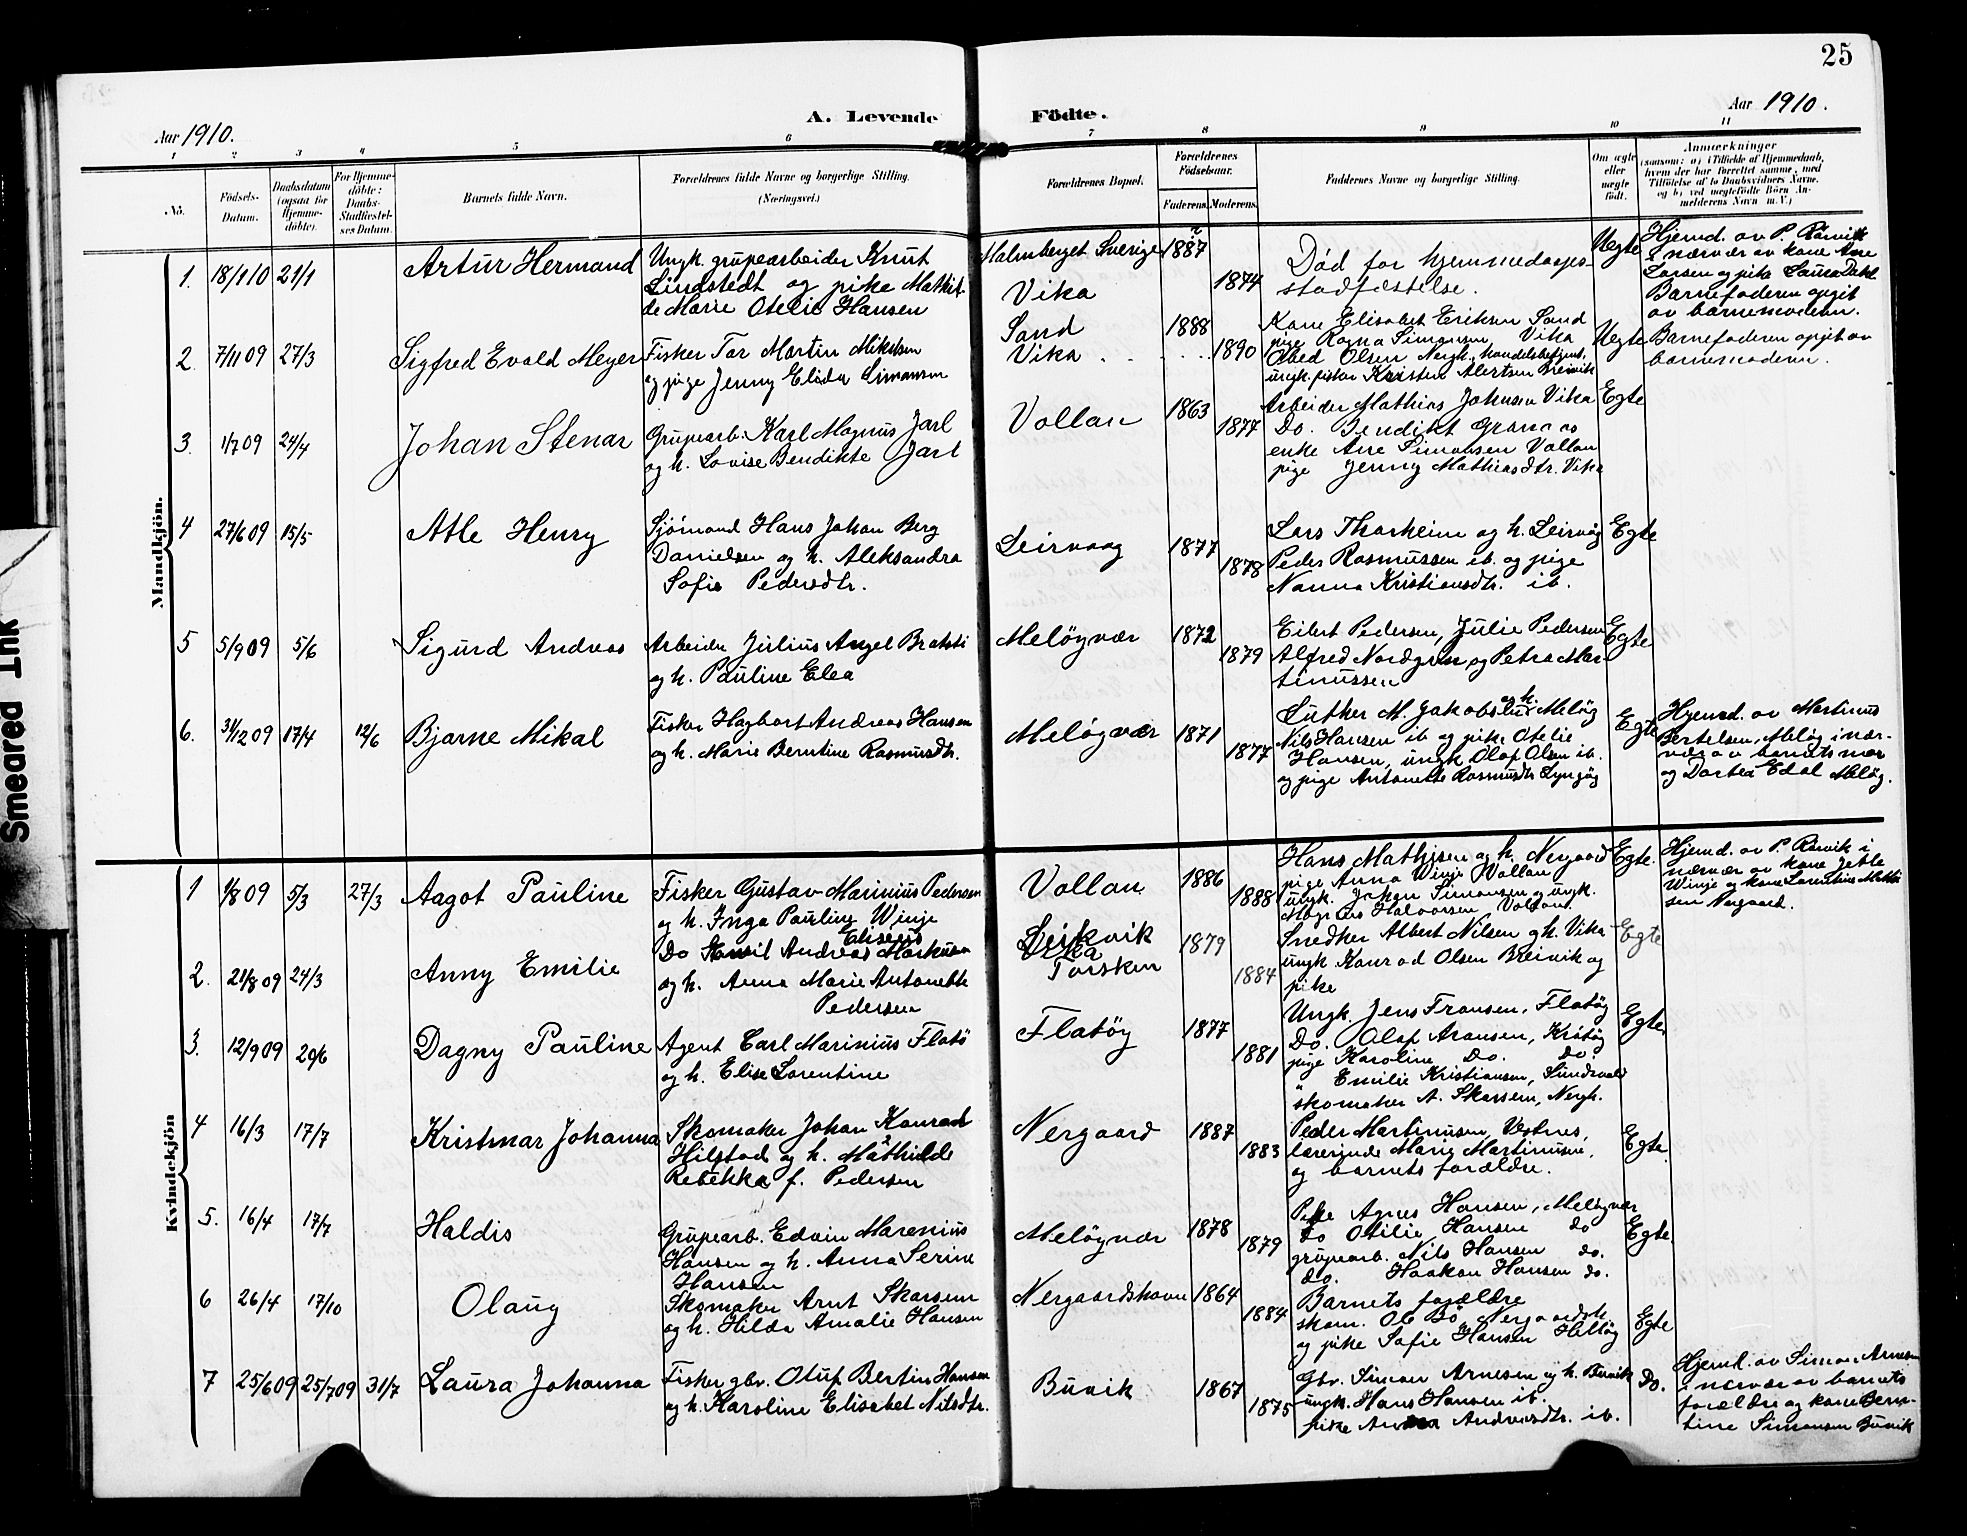 25
Aar 1910.
A. Levende
Födte.
Aar 1910.
1 2 3 4 5 6 7 8 9 10 11
No.
Födsels-
Datum.
Daabsdatum
(ogsaa for
Hjemme-
döbte).
For Hjemme-
döbte:
Daabs-
Stadfestel-
ses Datum.
Barnets fulde Navn.
Forældrenes fulde Navne og borgerlige Stilling.
(Næringsvei.)
Forældrenes Bopæl.
Forældrenes
Födselsaar.
Faderens. Moderens.
Faddernes Navne og borgerlige Stilling.
Om ægte
eller
uægte
födt.
Anmærkninger
(saasom: a) i Tilfælde af Hjemmedaab,
hvem der har forrettet samme, med
Tilföielse af to Daabsvidners Navne.
og b) ved uægtefödte Börn An-
melderens Navn m. V.)
Mandkjön.
1. 18/1 10 21/1 Artur Hermand
Ungk. grupearbeider Knut
Lindstedt og pike Mathil-
de Marie Otelie Hansen
Malmberget Sverige 1887
Vika 1874
Död for hjemmedaaps-
stadfæstelse.
Uegte
Hjemd. av P. Rörvik
i nærvær av kone Ane
Larsen og pike Laura Dahl
Barnefaderen opgit
av barnemoderen.
2. 7/11 09 27/3 Sigfred Evald Meyer
Fisker Tor Martin Mikalsen
og pige Jenny Elida Simonsen
Sand 1888
Vika 1890
Kone Elisabet Eriksen Sand
pige Ragna Simonsen Vika
Obed Olsen Nergh. handelsbetjent,
ungk. fisker Kristen Alertsen Breivik
Uegte
Barnefaderen opgit av
barnemoderen.
3. 1/7 09 24/4 Johan Stenar
Grupearb. Karl Magnus Jarl
og h. Lovise Bendikte Jarl
Vollan 1863 1877
Arbeider Mathias Johnsen Vika
Do. Bendikt Granaas
enke Ane Simonsen Vollan
pige Jenny Mathiasdtr. Vika
Egte
4 27/6 09 15/5 Atle Henry
Sjömand Hans Johan Berg
Danielsen og h. Aleksandra
Sofie Pedersdtr.
Leirvaag 1877 1878
Lars Thorheim og h. Leirvåg
Peder Rasmussen ib. og pige
Nanna Kristiansdtr. ib.
Egte
5 5/9 09 5/6 Sigurd Andreas
Arbeider Julius Angel
og h. Pauline Elea
Melögvær 1872 1879
Eilert Pedersen, Julie Pedersen
Alfred Nordgren og Petra Mar-
tinussen
Egte
6. 31/12 09 17/4 12/6 Bjarne Mikal
Fisker Hagbart Andreas Hansen
og h. Marie Berntine Rasmusdtr.
Melögvær 1871 1877
Luther M. Jakobsen og h. Melög
Nils Hansen ib og pike Otelie
Hansen, ungk Olaf Olsen ib.
og pige Antonette Rasmusdtr Lyngög
Egte
Hjemd. av Martinus
Bertelsen, Melög i nær-
vær av barnets mor
og Dortea Edal Melög.
Kvindekjön
1 1/8 09 5/3 27/3 Aagot Pauline
Fisker Gustav Marinius Pedersen
og h. Inga Pauline Winje
Vollan 1886 1888
Hans Mathisen og h. Nergaard
pige Anna Winje Vollan
ungk. Johan Simonsen og ungk.
Magnus Halvorsen Vollan.
Egte.
Hjemd. av P. Rörvik i
nærvær av kone Jette
Winje og kone Lorentine Mathi
sen Nergaard.
2. 21/8 09 24/3 Anny Emilie
Eliseus
Do Andreas Markusen
og h. Anna Marie Antonette
Pedersen
Leikvik
Torsken
1879 1884
Snedker Albert Nilsen og h. Vika
ungk Konrad Olsen Breivik og
pike
Egte
3. 12/9 09 20/6 Dagny Pauline
Agent Carl Marinius Flatö
og h. Elise Lorentine
Flatög 1877 1881
Ungk. Jens Fransen, Flatög
Do. Olaf Aronsen, Kråtög
pige Karoline Do. do.
" Emilie Kristiansen, Sundsvold
skomaker A. Skarsem, Nergh.
Egte
4 16/3 17/7 Kristmar Johanna
Skomaker Johan Konrad
Hilstad og h. Mathilde
Rebekka f. Pedersen
Nergaard 1887 1883
Peder Martinusen, Vestnes,
lærerinde Marie Martinusen,
og barnets forældre.
Egte.
5. 16/4 17/7 Haldis
Grupearb. Edvin Marenius
Hansen og h. Anna Serine
Hansen
Melögvær 1878 1879
Pike Agnes Hansen, Melögvær
Do Otilie Hansen do
grupearb. Nils Hansen do.
do. Haakon Hansen do.
Egte.
6 26/4 17/10 Olaug
Skomaker Arnt Skarsem
og h. Hilda Amalie Hansen
Nergaardshavn 1864 1884
Barnets forældre
skom. Ole Bö Nergaardsh.
og pike Sofie Hansen
Egte
7 25/6 09 25/7 09 31/7 Laura Johanna
Fisker gbr. Oluf Bertin Hansen
og h. Karoline Elisabet Nilsdtr.
Buvik 1867 1875
Gbr. Simon Arnesen og h. Buvik
ungk. Hans Hansen ib.
pike Andreasdtr. ib.
Do.
Hjemd. av Simon Arnesen
i nærvær av barnets
forældre og kone Bern-
tine Simonsen Buvik
Smeared Ink